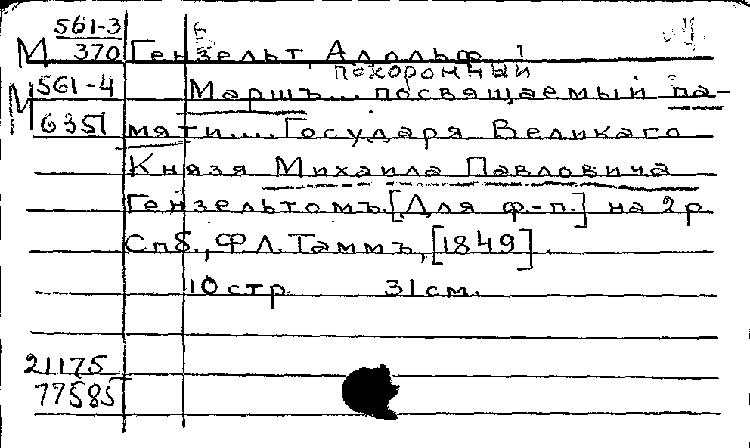 561-3
М 370 Гензельт, Адольф
похоронный
М 561-4 Маршъ... посвящаемый па-
6351 мяти.... Государя Великаго
Князя Михаила Павловича
Гензельтомъ. [Для ф.-п.] на 2 р.
Спб., Ф.Л. Таммъ, [1849].
10 стр. 31 см.
21175
77585